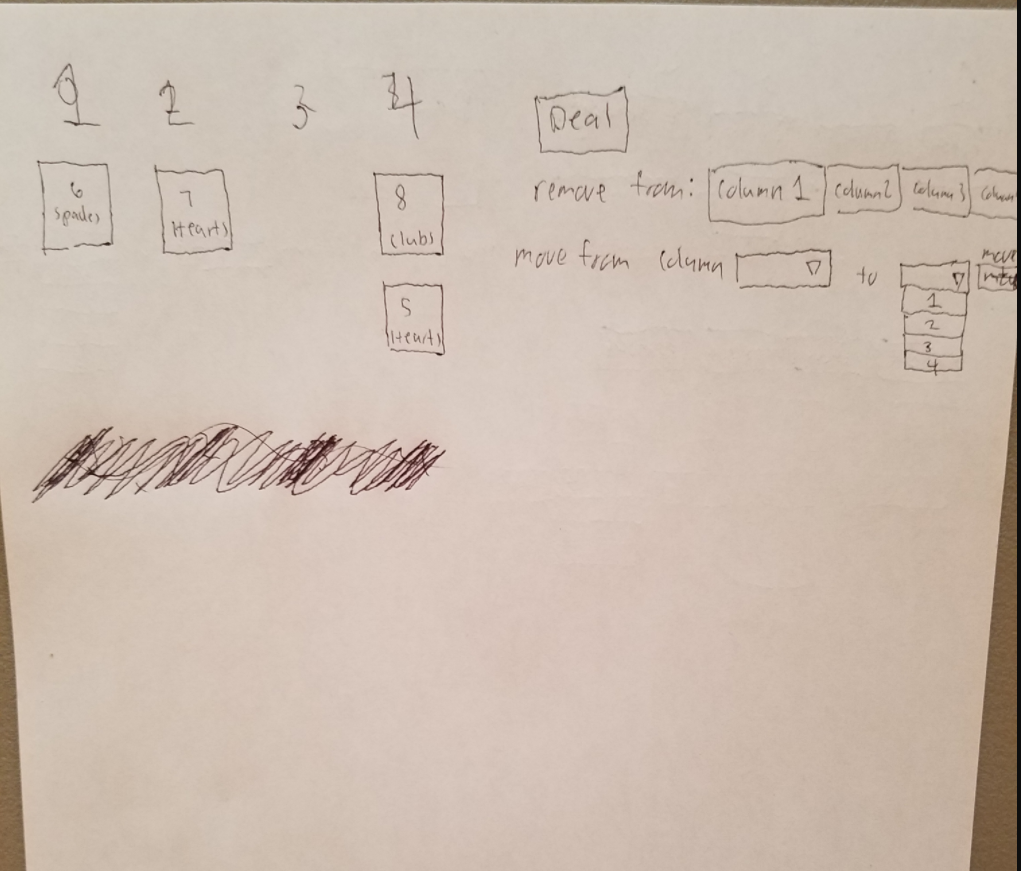 1 2 3 4
6
Spades
7
Hearts
8
Clubs
5
Hearts
Deal
remove from: Column 1 Column2 Column3 Column
move from column to move
1
2
3
4